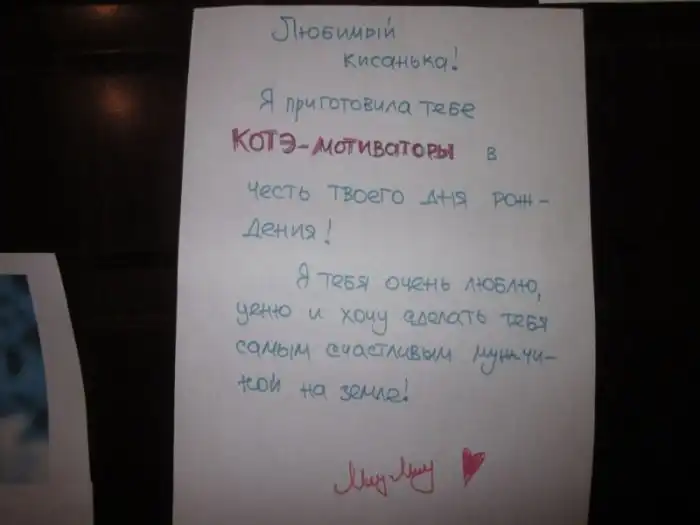 Любимый
кисанька!
Я приготовила тебе
КОТЭ-мотиваторы в
честь твоего дня рож-
дения!
Я тебя очень люблю,
ценю и хочу сделать тебя
самым счастливым мужчи-
ной на земле!
Миу-Миу